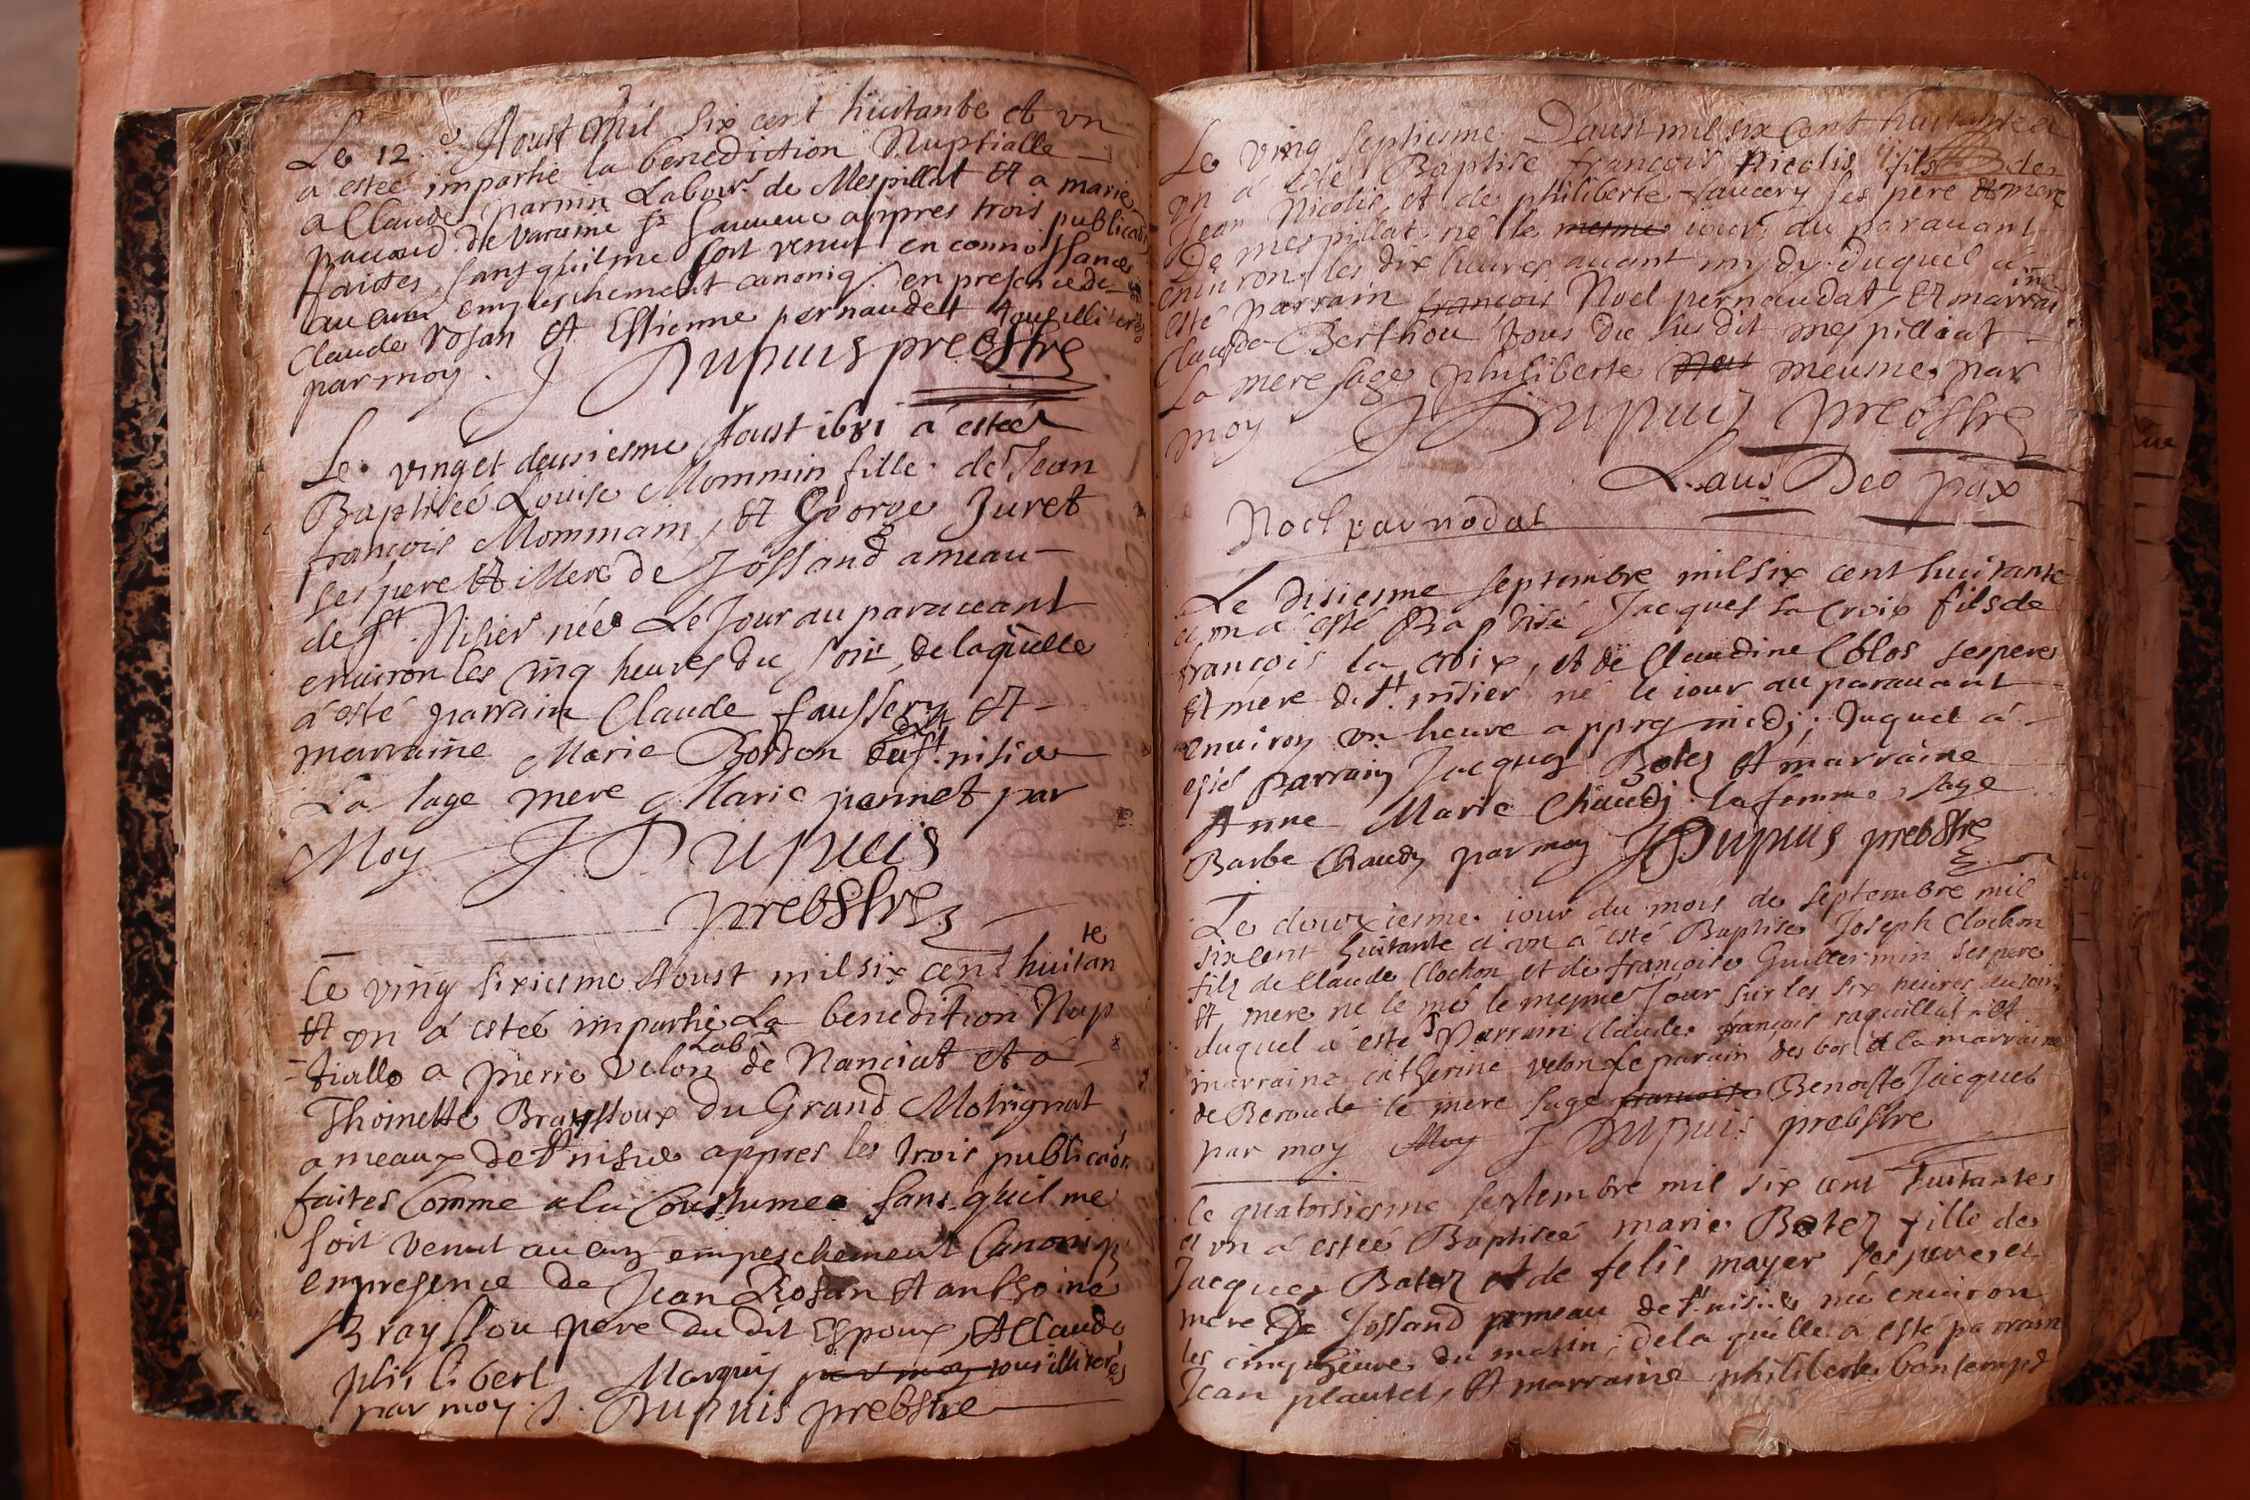 Le 12.e Aoust mil six cent huitante et un
a estée impartie la benediction Nuptialle
a Claude parnin Labour. de Mespillat Et a marie
pacaud de varenne St Sauveur appres trois publicaos
faictes, sans quil me soit venut en connoissances
aucun empeschement canoniq. en presence de
Claude rosan et Estienne pernaudet tous illiteres
par moy. J Dupuis prebstre
Le vinget deusiesme Aoust 1681 a estéé
Baptiséé Louise Mommin fille de Jean
francois Mommain, Et George Juret
ses pere Et Mere de Jossand ameau
de St. Nisier néé Le Jour au paravant
environ les cinq heures du soir, de laquelle
a esté parrain Claude faussery Et
marraine Marie Bordon du St. nisier
La sage mere Marie pennet par
Moy J Dupuis
prebstre
Le ving sixiesme Aoust mil six cent huitan te
Et un á estéé impartie La benedition Nup
tialle a pierre Velon Lab de Nanciat et a
Thomette Brayssoux du Grand Molrignat
ameaux de St nisier appres les trois publicaos
faites Comme a la Coustumee sans quil me
soit venut aucun empeschement Canoniq
en presence de Jean Rosan Et anthoine
Brayssou pere du dit Espoux, Et Claude
philibert Marquis par moy tous illiterés
par moy. J. Dupuis prebstre
Le ving septiesme Daust mil six Cent huitante et
un á esté Baptise francois Nicolis fils de
Jean Nicolis, et de philiberte saucery ses pere Et mere
De mespillat né le mesme iour du paravant
environ les dix heures avant mydy. duquel á
esté parrain francois Noel pernaudat, Et marraine
Claude Berthou tous du susdit mespillat
La mere sage philiberte meusme, par
moy J Dupuis prebstre
Laus Deo pax
Noel parnodat
Le disiesme septembre mil six cent huitante
et un á esté Baptisé Jacques la Croix fils de
francois la croix, et de Claudine Colos ses peres
Et mere de St. nisier né le iour au paravant
environ un heure appres midj; duquel á
esté parrain Jacques Botez Et marraine
Anne Marie Chaudj la femme sage
Barbe Chaudy par moy J Dupuis prebstre
Le douxiesme iour du mois de septembre mil
six cent huitante et un á esté Baptise Joseph Clochon
filz de Claude Clochon et de francoise Guillermin ses pere
Et mere né le me le mesme Jour sur les six heures du soir
duquel á este parrain Claude françois raquillat et
marraine catherine velon le parain des bos et la marraine
de Beroude la mere sage francoise Benoiste Jacquet
par moy Moy J Dupuis prebstre
Le quatorsiesme septembre mil six cent huitantes
et un á estéé Baptiséé marie Botez fille de
Jacques Botez et de felis mayer ses peres et
mere de Jossand ameau de St. nisier néé environ
les cinq heures du matin; de la quelle á esté parrain
Jean plautet, Et marraine philiberte bontemps